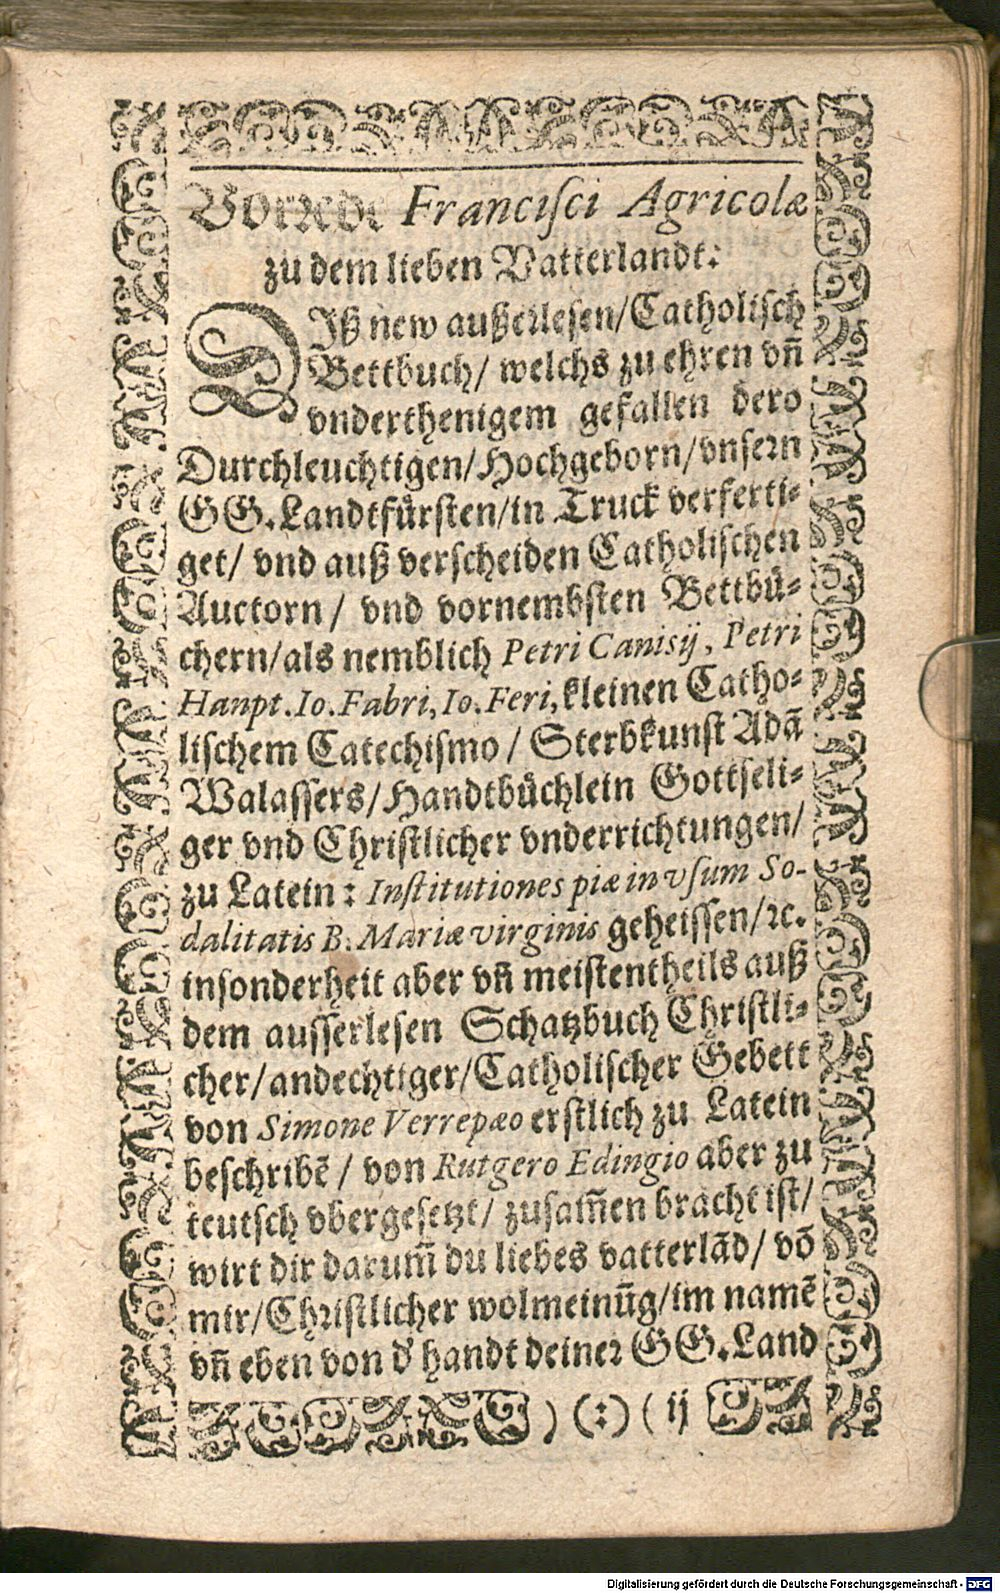 Vorꝛede Franciſci Agricolæ
zu dem lieben Vatterlandt:
DIß new außerleſen/Catholiſch
Bettbuch/ welchs zu ehren vñ
vnderthenigem gefallen dero
Durchleuchtigen/Hochgeborn/vnſern
GG.Landtfürſten/in Truck verferti-
get/ vnd auß verſcheiden Catholiſchen
Auctorn / vnd vornembſten Bettbü-
chern/als nemblich Petri Canisij, Petri
Hanpt. Io. Fabri, Io. Feri, kleinen Catho-
liſchem Catechiſmo / Sterbkunſt Adã
Walaſſers/Handtbüchlein Gottſeli-
ger vnd Chriſtlicher vnderrichtungen/
zu Latein: Inſtitutiones piæ in vſum So-
dalitatis B. Mariæ virginis geheiſſen/ꝛc.
inſonderheit aber vñ meiſtentheils auß
dem auſſerleſen Schatzbuch Chriſtli-
cher/andechtiger/Catholiſcher Gebett
von Simone Verrepæo erſtlich zu Latein
beſchribẽ / von Rutgero Edingio aber zu
teutſch vbergeſetzt/ zuſam̃en bracht iſt/
wirt dir darum̃ du liebes vatterlãd/ võ
mir/Chriſtlicher wolmeinũg/im namẽ
vñ eben von d' handt deiner GG.Land
) (:) ( ij
Digitalisierung gefördert durch die Deutsche Forschungsgemeinschaft - DFG